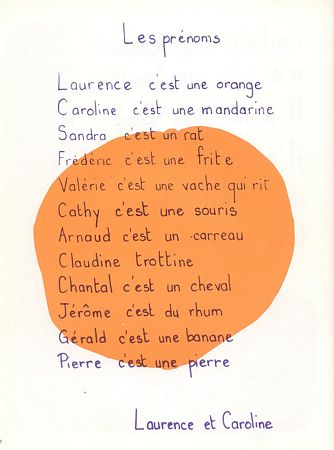 Les prénoms
Laurence c'est une orange
Caroline c'est une mandarine
Sandra c'est un rat
Frédéric c'est une frite
Valérie c'est une vache qui rit
Cathy c'est une souris
Arnaud c'est un carreau
Claudine trottine
Chantal c'est un cheval
Jérôme c'est du rhum
Gérald c'est une banane
Pierre c'est une pierre
Laurence et Caroline